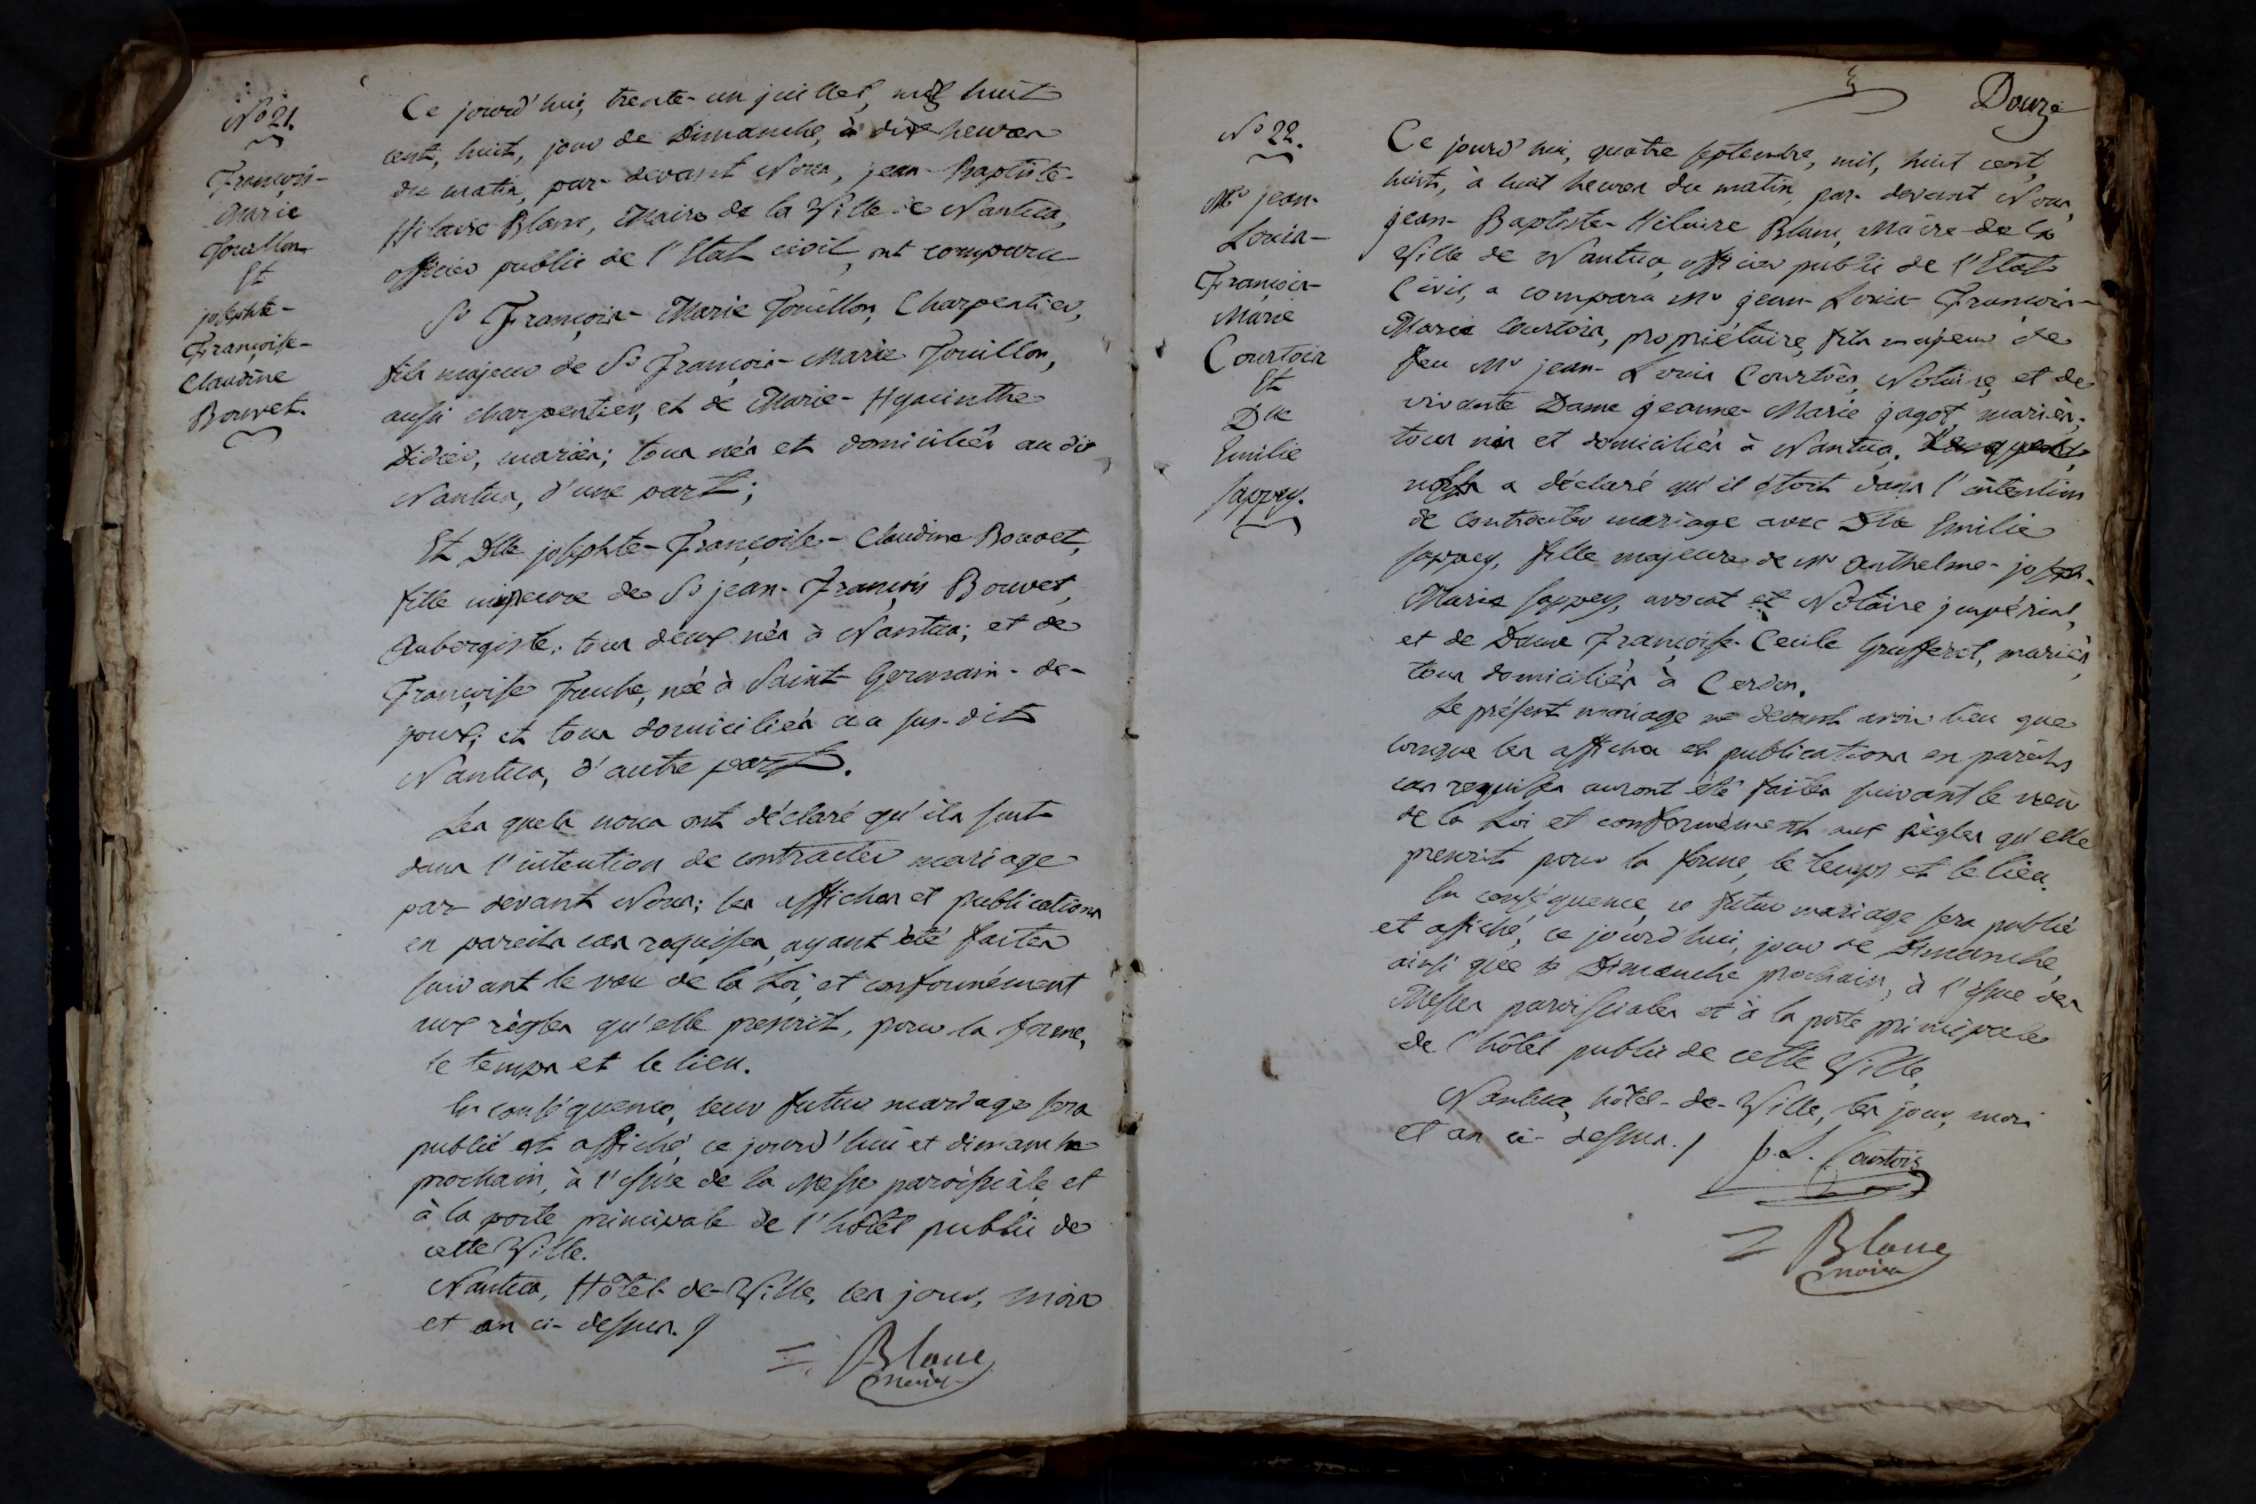 No 21.
François-
Marie
Jouillon
Et
josephte-
Françoise-
Claudine
Bouvet.
Ce jourd'hui, trente-un juillet, mil huit
cent, huit, jour de Dimanche, à dix heures
du matin, par-devant Nous, jean-Baptiste-
Hilaire Blanc, Maire de la Ville de Nantua,
officier public de l'Etat civil, ont comparu
Sr François-Marie Jouillon, Charpentier,
fils majeur de Sr François-Marie Jouillon,
aussi charpentier, et de Marie-Hyacinthe
Didier, mariés; tous nés et domiciliés au dit
Nantua, d'une part;
Et Dlle josephte-Françoise-Claudine Bouvet,
fille mineure de Sr jean-François Bouvet,
Aubergiste; tous deux nés à Nantua; et de
Françoise, née à Saint Germain-de-
joux; et tous domiciliés au sus-dit
Nantua, d'autre part.
Les quels nous ont déclaré qu'ils sont
dans l'intention de contracter mariage
par devant Nous; les affiches et publications
en pareils cas requises, ayant été faites
suivant le vœu de la Loi, et conformément
aux règles qu'elle prescrit, pour la forme,
le temps et le lieu.
En conséquence, leur futur mariage sera
publié et affiché, ce jourd'hui et dimanche
prochain, à l'issue de la Messe paroissiale, et
à la porte principale de l'hôtel public de
cette Ville.
Nantua, Hôtel-de-Ville, les jour, mois
et an ci-dessus.
Blanc
maire
Douze
No 22.
Mr jean-
Louis-
François-
Marie
Courtois
Et
Dlle
Emilie
Sappey.
Ce jourd'hui, quatre septembre, mil, huit cent,
huit, à huit heures du matin, par-devant Nous,
jean-Baptiste-Hilaire Blanc, Maire de la
Ville de Nantua, officier public de l'Etat
Civil, a comparu Mr jean-Louis-François-
Marie Courtois, propriétaire, fils majeur de
feu Mr jean-Louis Courtois, Notaire, et de
vivante Dame jeanne-Marie jagot, mariés;
tous nés et domiciliés à Nantua.
a déclaré qu'il étoit dans l'intention
de contracter mariage avec Dlle Emilie
Sappey, fille majeure de Mr Anthelme-joseph-
Marie Sappey, avocat et Notaire jmpérial,
et de Dame Françoise-Cecile Grufferet, mariés,
tous domiciliés à Cerdon.
Le présent mariage ne devant avoir lieu que
lorsque les affiches et publications en pareils
cas requises auront été faites suivant le vœu
de la Loi, et conformément aux règles qu'elle
prescrit pour la forme, le temps et le lieu.
En conséquence, ce futur mariage sera publié
et affiché, ce jourd'hui, jour de Dimanche,
ainsi que le Dimanche prochain, à l'issue des
Messes paroissiales et à la porte principale
de l'hôtel public de cette Ville.
Nantua, hôtel-de-Ville, les jour, mois
et an ci-dessus. J. L. Courtois
Blanc
maire